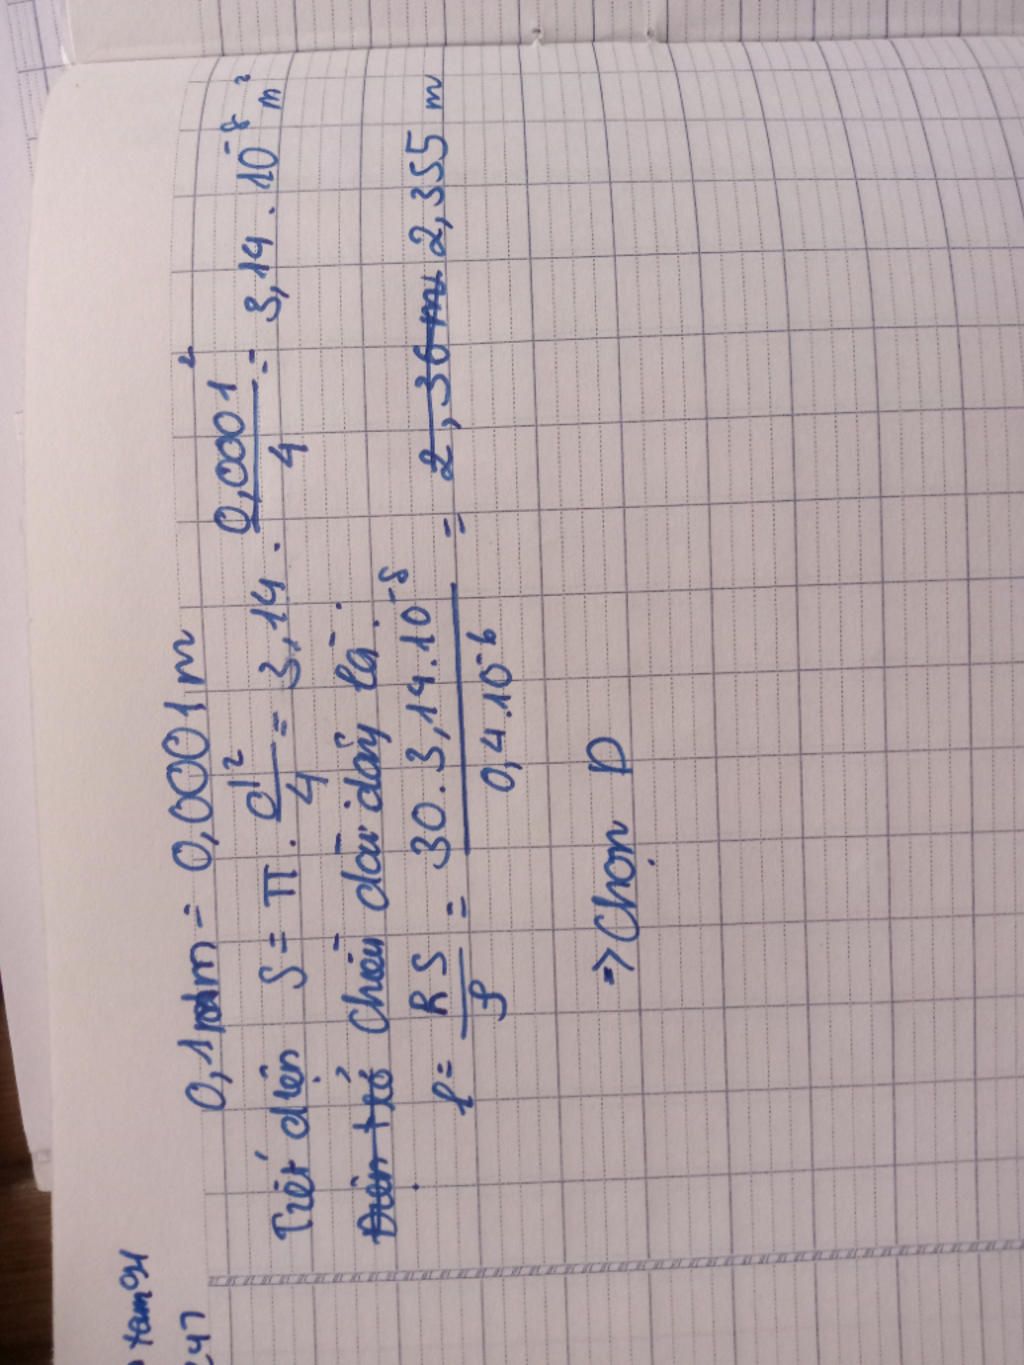 0,1 mm = 0,0001 m
Tiết diện S = π . d²/4 = 3,14 . 0,0001²/4 = 3,14 . 10⁻⁸ m²
Điện trở Chiều dài dây là :
l = RS/ρ = 30 . 3,14 . 10⁻⁸/0,4 . 10⁻⁶ = 2,36 m 2,355 m
=> Chọn D